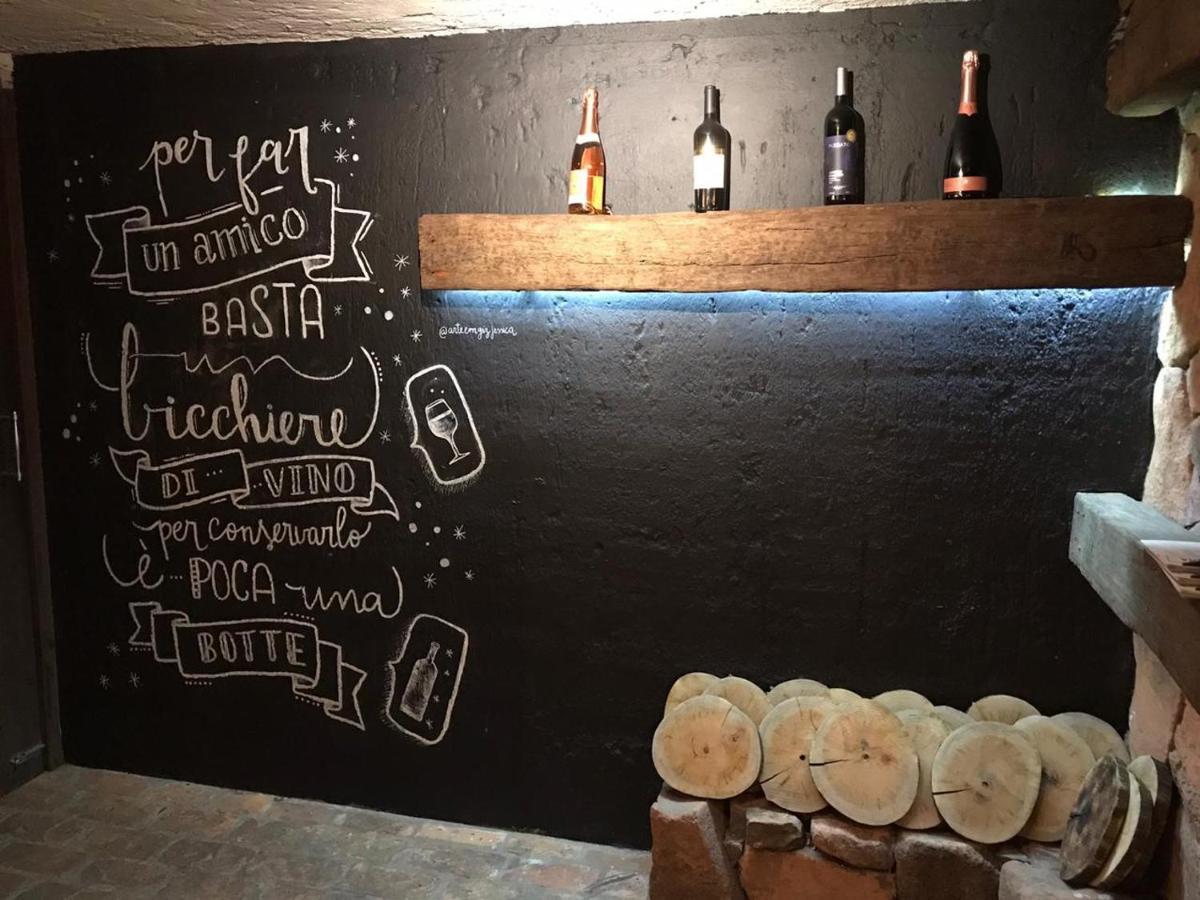 per far
un amico
BASTA
un
bicchiere
DI VINO
per conservarlo
è POCA una
BOTTE